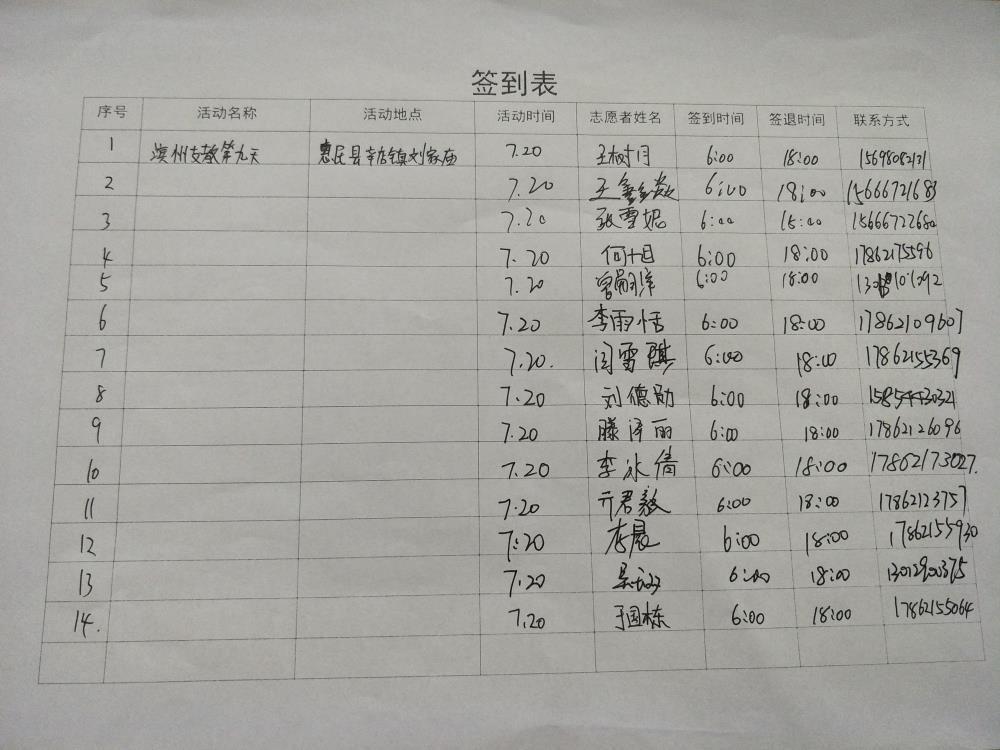 签到表
序号 活动名称 活动地点 活动时间 志愿者姓名 签到时间 签退时间 联系方式
1 滨州支教第九天 惠民县辛店镇刘家庙 7.20 王树月 6:00 18:00 15698082131
2 7.20 王鑫淼 6:00 18:00 15666721683
3 7.20 张雪妮 6:00 15:00 15666722680
4 7.20 6:00 18:00 17862175596
5 7.20 6:00 18:00
6 7.20 李雨恬 6:00 18:00 17862109607
7 7.20. 闫雪琪 6:00 18:00 17862155369
8 7.20 刘德勋 6:00 18:00 15854430321
9 7.20 滕泽丽 6:00 18:00 17862126096
10 7.20 李冰倩 6:00 18:00 17862173027.
11 7.20 亓君毅 6:00 18:00 17862123757
12 7:20 李晨 6:00 18:00 17862155930
13 7.20 6:00 18:00 13012900375
14. 7.20 于国栋 6:00 18:00 17862155064